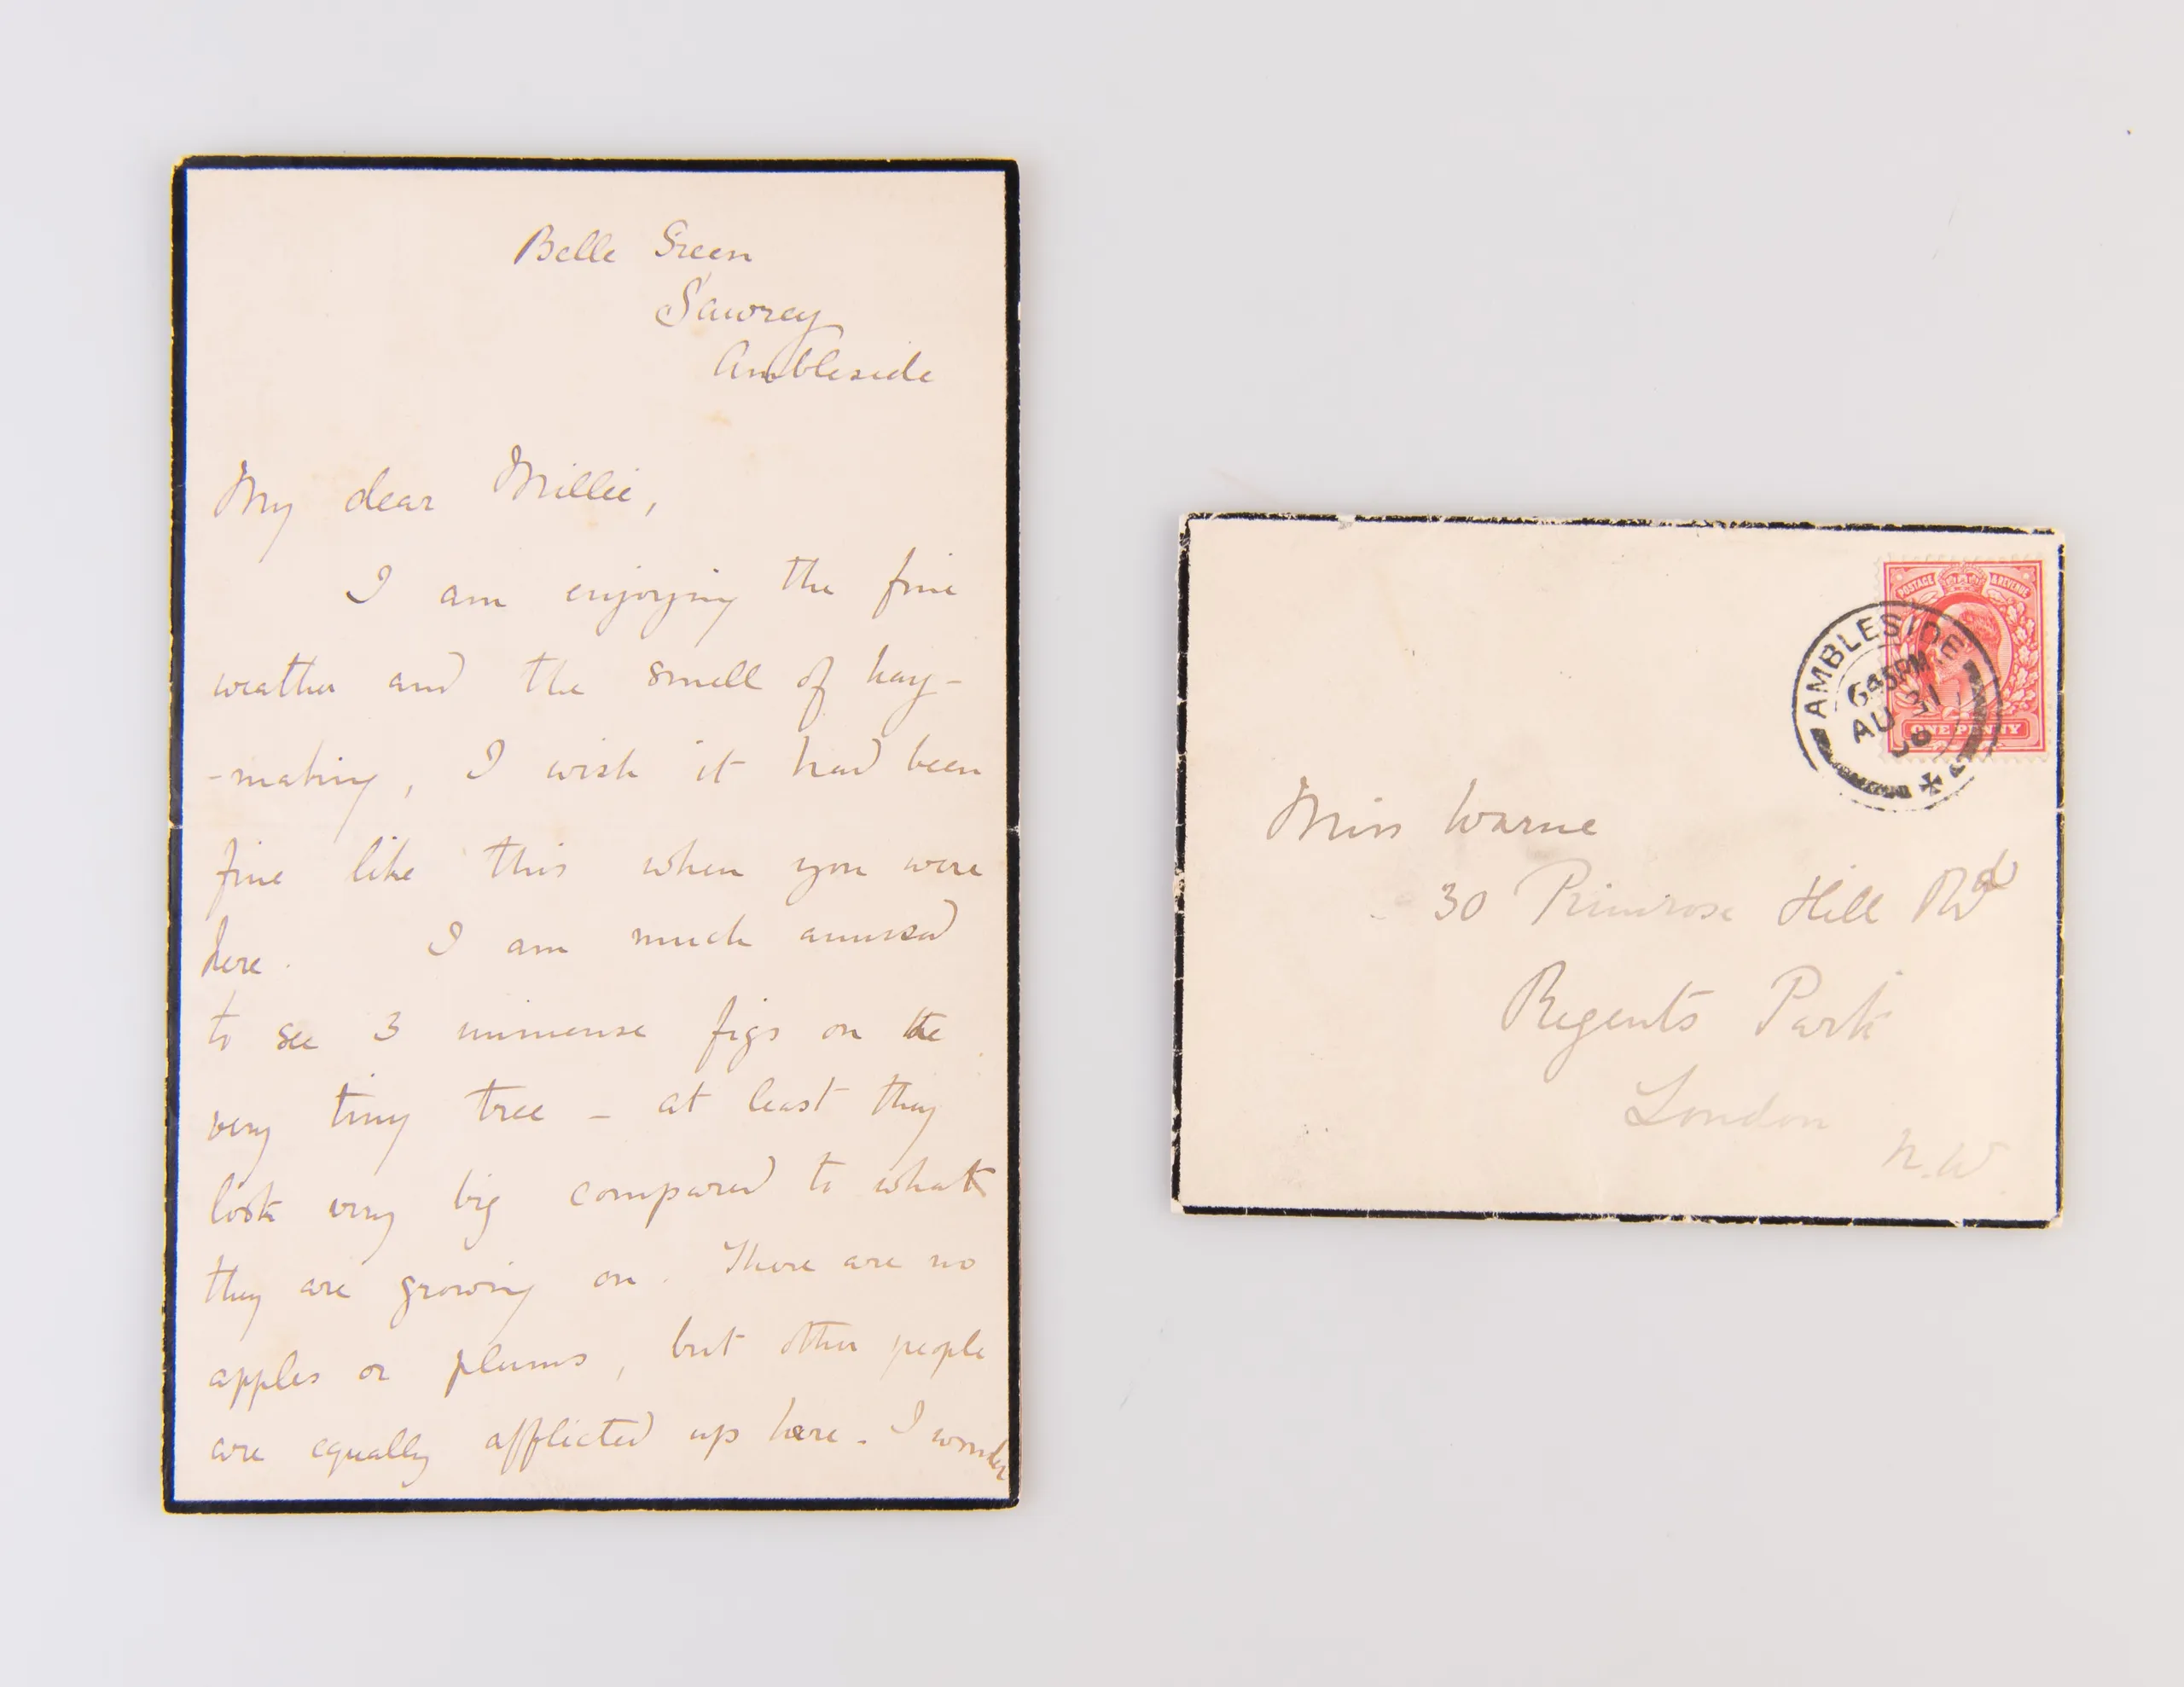 Belle Green
Sawrey
Ambleside
My dear Millie,
I am enjoying the fine
weather and the smell of hay-
-making, I wish it had been
fine like this when you were
here. I am much amused
to see 3 immense figs on the
very tiny tree - at least they
look very big compared to what
they are growing on. There are no
apples or plums, but other people
are equally afflicted up here. I wonder
POSTAGE & REVENUE
ONE PENNY
AMBLESIDE
6 45 PM
AU 31
06
Miss Warne
30 Primrose Hill Rd
Regents Park
London
N.W.